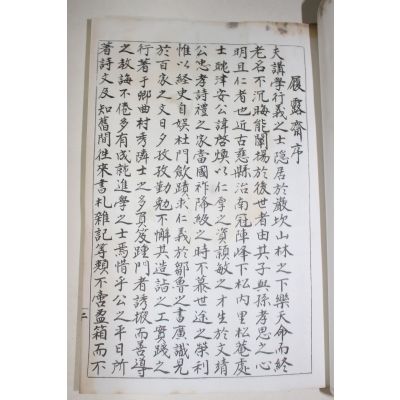 履露齋序
夫講學行義之士隱居於巖坎山林之下樂天命而終
老名不沉晦能闡揚於後世者由其子與孫孝思之心
明且仁者也近古慈縣治南冠陣峰下松内里松菴處
士眺津安公諱啓煥以仁挐之資穎敏之才生於文靖
公忠孝詩禮之家當國祚降級之時不慕世途之榮利
惟以經史自娱杜門飮蹟求仁義於鄒魯之書廣識見
於百家之文日夕孜孜勤勉不懈其造詣之工實踐之
行著于鄉曲村秀隣士之多負笈踵門者誘掖而善導
之教誨不倦多有成就進學之士焉惜乎公之平日所
著詩文及知舊間徃來書札雜記等類不啻盈箱而不
二